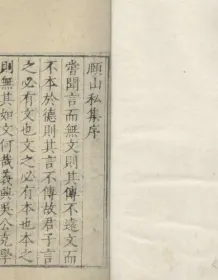 頤山私集序
嘗聞言而無文則其傳不遠文而
不本於德則其言不傳故君子言
之必有文也文之必有本也本之
則無其如文何哉義興吳公克學